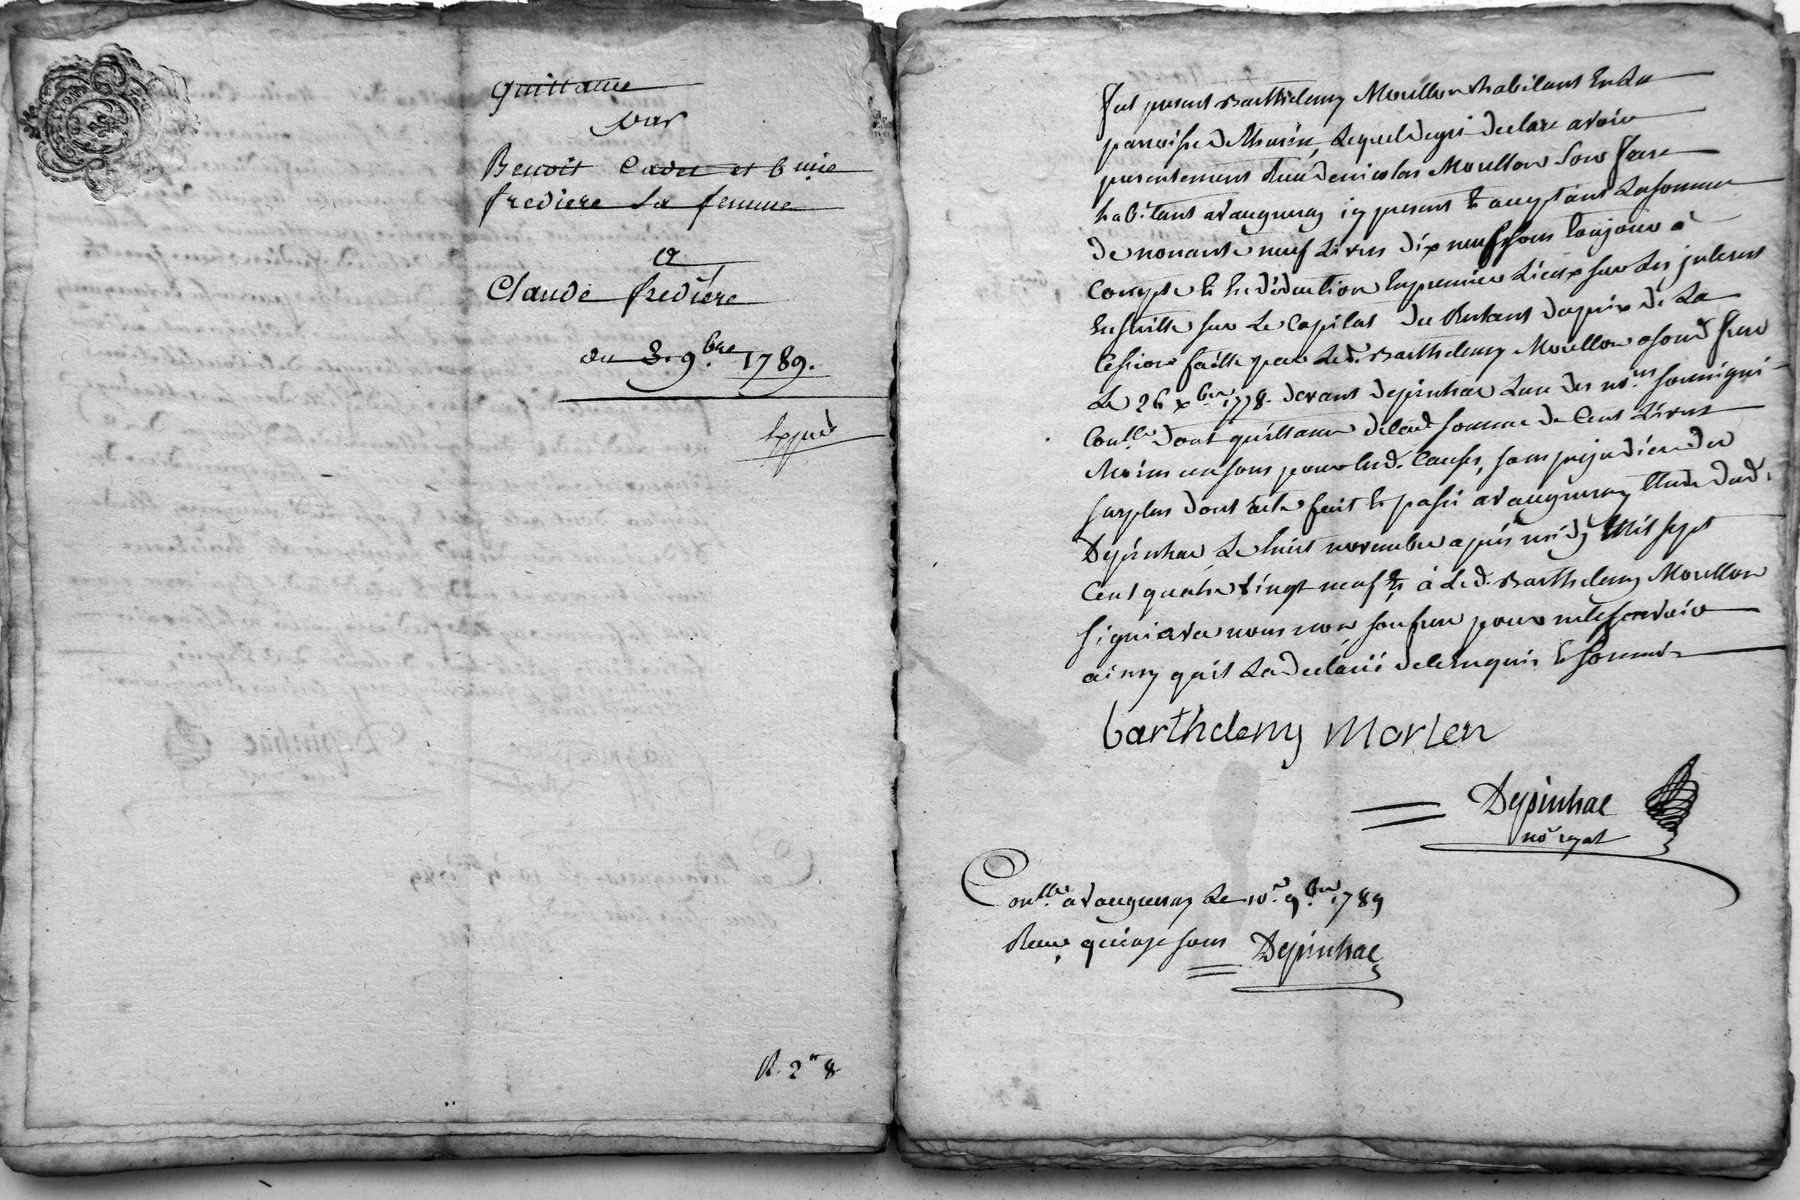 quittance
par
Benoit Cadet et b mie
frediere sa femme
a
Claude frediere
du 3. 9bre 1789.
Expedé
R. 2" 8
fut present Barthelemy Moullon habitant En La
parroisse de Lequel degré declare avoir
presentement Reçu de nicolas Moullon son frere
habitant a vaugneray icy present Et acceptant La somme
de nonante neuf Livres dix neuf sous toujours à
Compte Et En deduction En premier Lieux sur Les interest
Ensuitte sur Le Capital du Restant du prix de La
Cession faitte par Led. Barthelemy Moullon a sond frere
Le 26 xbre 1778. devant depinhac L'un des nores soussigné
Conllé dont quittance de lad somme de Cent Livres
Moins un sous pour lesd. Causes, sans prejudice du
surplus dont acte fait Et passé a vaugneray Etude dud.
Depinhac Le huit novembre après midy Mil sept
Cent quatre vingt neuf Et à Led. Barthelemy Moullon
signé avec nous non son frere pour ne le scavoir
ainsy qu'il La declaré de le Enquis Et sommé
barthelemy morlen
Depinhac
nore royal
Conllé a vaugneray Le 10e 9bre 1789
Reçu quinze sous Depinhac